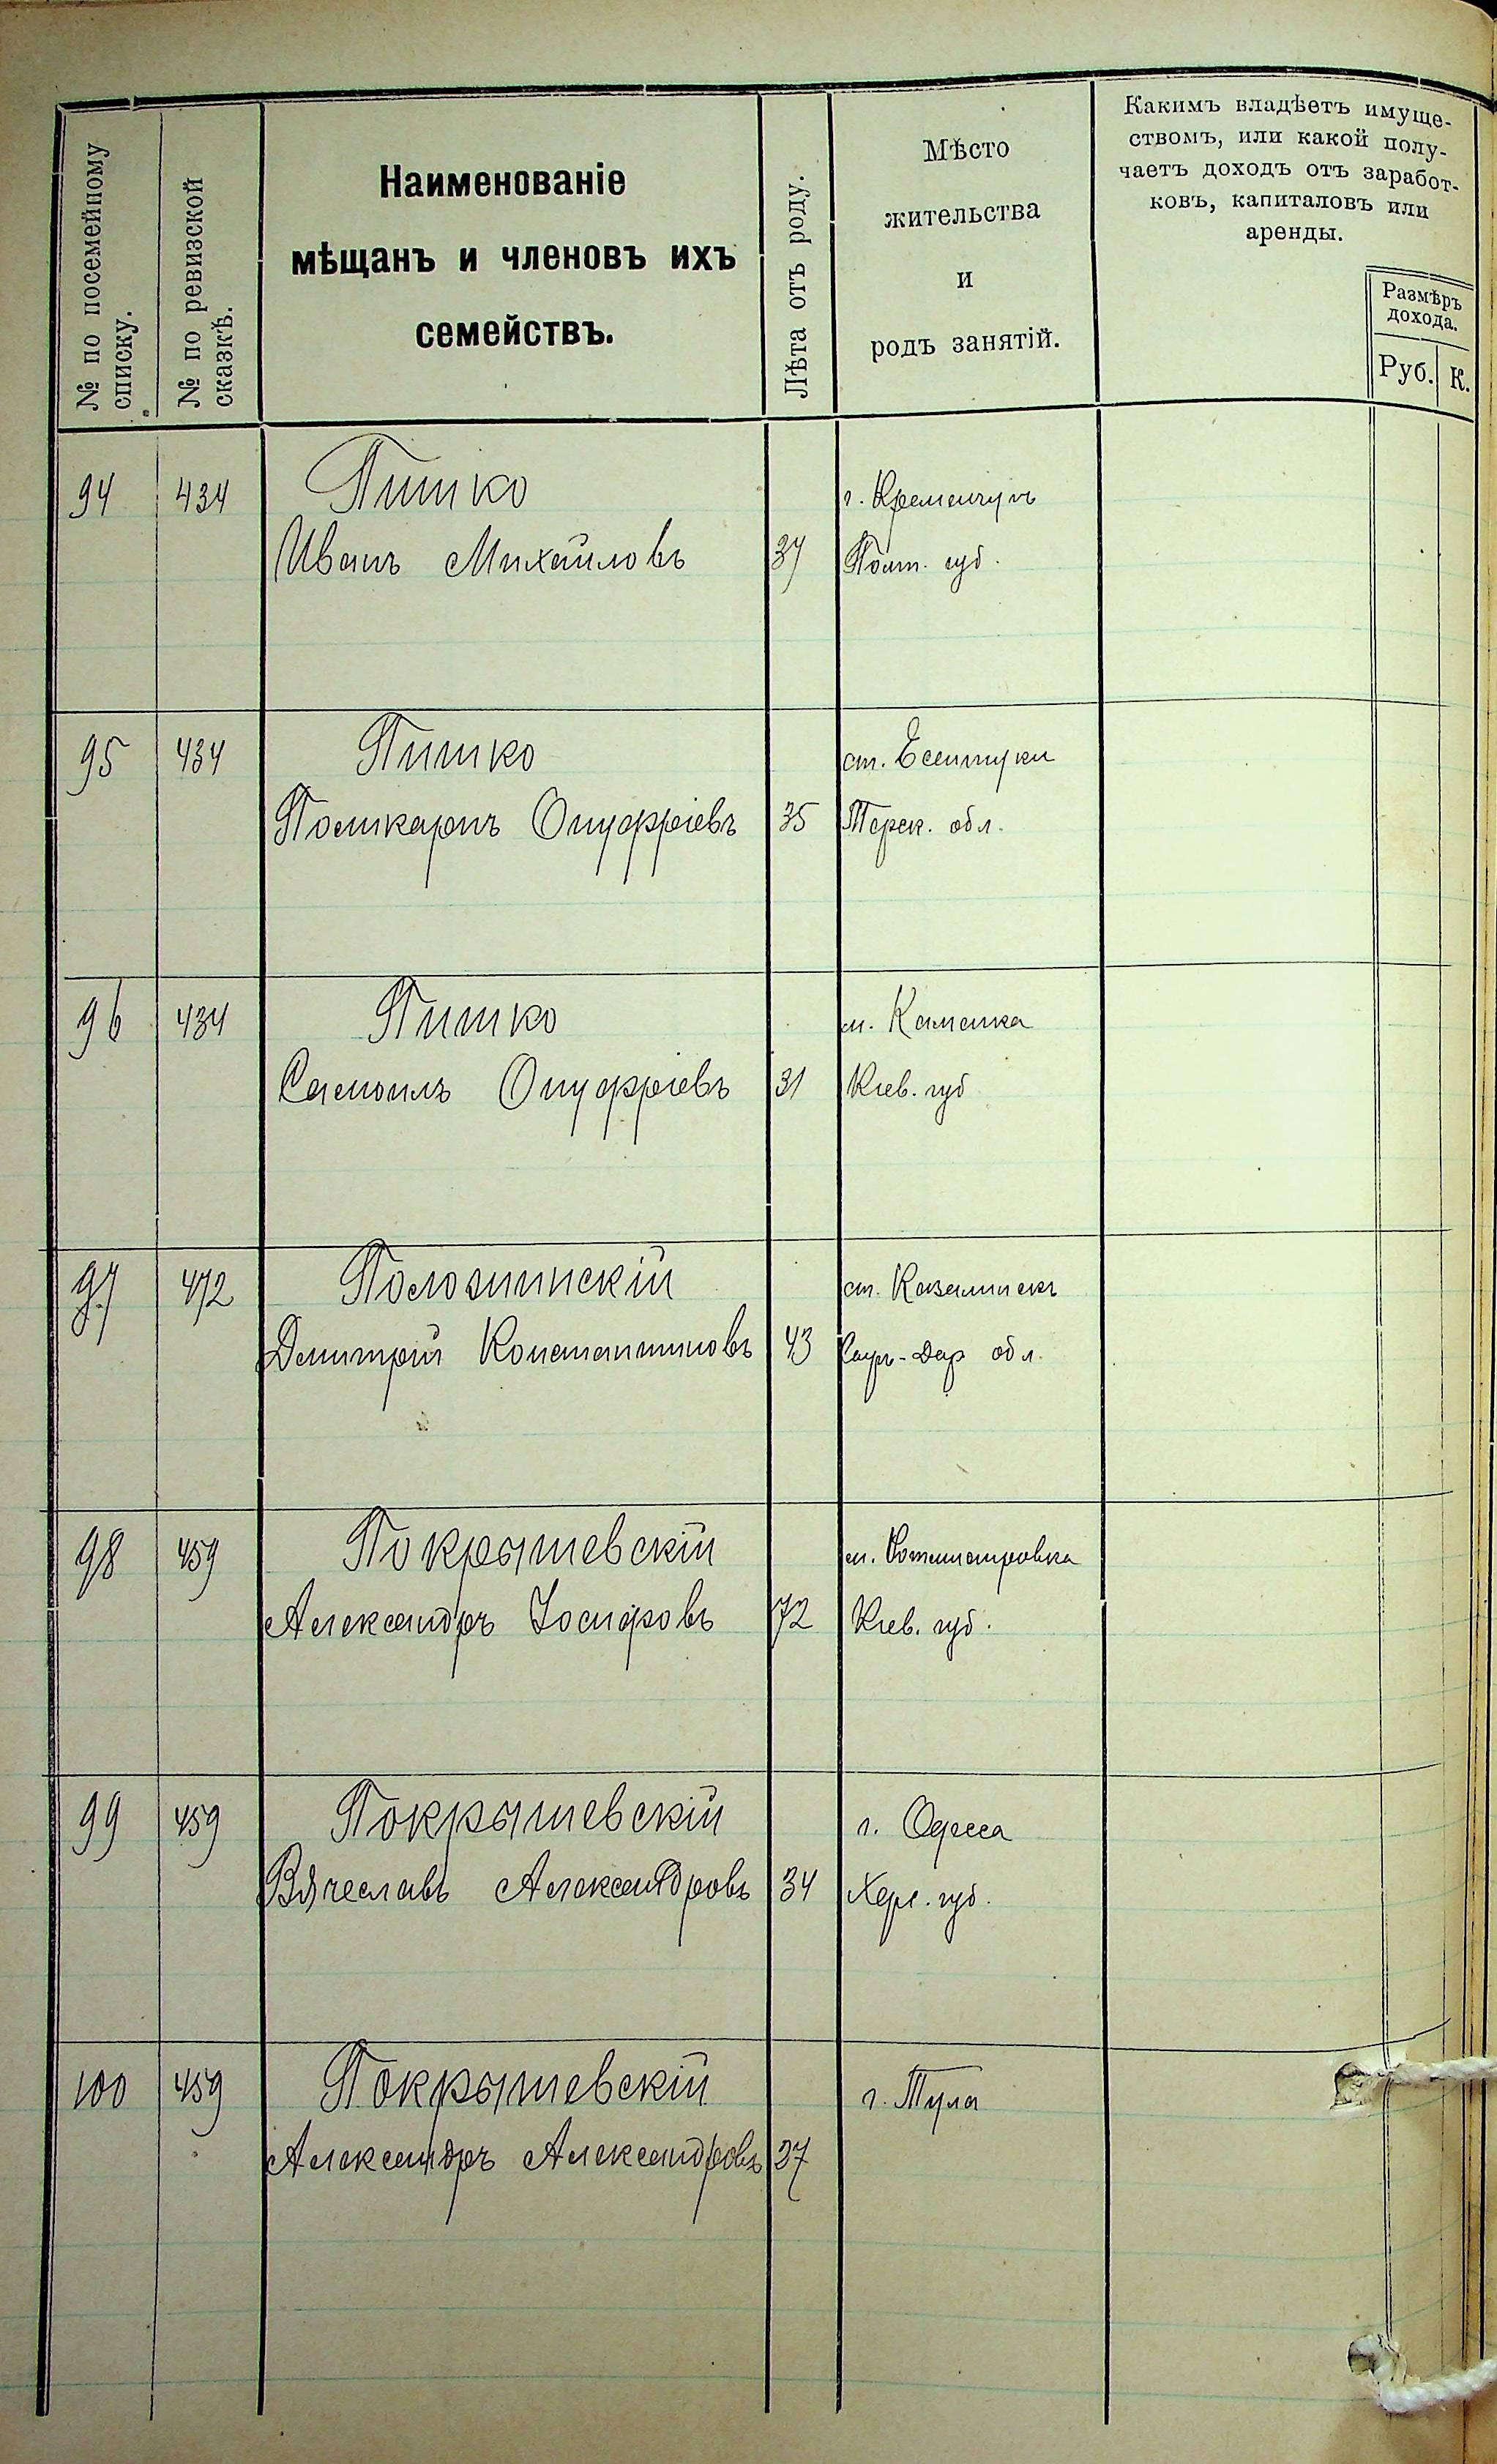 № по посемейному
списку.
№ по ревизской
сказкѣ.
Наименованіе
мѣщанъ и членовъ ихъ
семействъ.
Лѣта отъ роду.
Мѣсто
жительства
и
родъ занятій.
Какимъ владѣетъ имуще-
ствомъ, или какой полу-
чаетъ доходъ отъ заработ-
ковъ, капиталовъ или
аренды.
Размѣръ
дохода.
Руб. К.
94 434 Пишко г. Кременчугъ
Иванъ Михайловъ 37 Полт. губ.
95 434 Пишко ст. Есентуки
Поликарпъ Онуфріевъ 35 Терск. обл.
96 434 Пишко м. Каменка
Самоилъ Онуфріевъ 31 Кіев. губ
97 472 ст. Казалинскъ
Дмитрій Константиновъ 43 Сыръ-Дар обл.
98 459 Покрышевскій м. Ротмистровка
Александръ Іосифовъ 72 Кіев. губ.
99 459 Покрышевскій г. Одесса
Вячеславъ Александровъ 34 Херс. губ.
100 459 Покрышевскій г. Тула
Александръ Александровъ 37